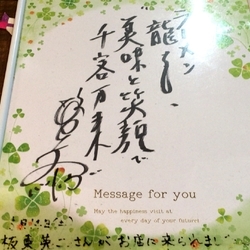 ラーメン
龍し、
美味と笑顔で
千客万来
Message for you
May the happiness visit at
every day of your future!
板東英二さんがお店に来られまし